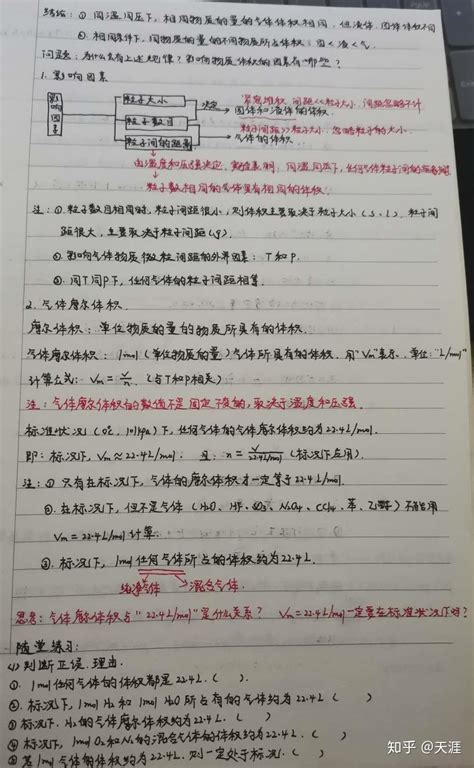 结论：① 同温同压下，相同物质的量的气体体积相同，但液体、固体体积不同
② 相同条件下，同物质的量的不同物质所占体积：固<液<气.
问题：为什么会有上述规律？影响物质体积的因素有哪些？
1. 影响因素
影响因素
粒子大小
粒子数目
粒子间的距离
决定
紧密堆积，间距<<粒子大小，间距忽略不计
固体和液体的体积.
粒子间距>>粒子大小，忽略粒子的大小.
气体的体积.
由温度和压强决定，同温同压下，任何气体粒子间的距离相等
粒子数相同的气体具有相同的体积.
注：①. 粒子数目相同时，粒子间距很小，则体积主要取决于粒子大小（s、l）. 粒子间
距很大，主要取决于粒子间距(g).
②. 影响气体物质微粒间距的外界因素：T和P.
③. 同T同P下，任何气体的粒子间距相等.
2. 气体摩尔体积.
摩尔体积：单位物质的量的物质所具有的体积.
气体摩尔体积：1mol（单位物质的量）气体所具有的体积. 用"Vm"表示. 单位："L/mol"
计算公式：Vm = V/n （与T和P相关）
注：气体摩尔体积的数值不是固定不变的，取决于温度和压强.
标准状况（0℃, 101kpa）下，任何气体的气体摩尔体积约为22.4L/mol.
即：标况下，Vm ≈ 22.4L/mol； 且：n = V/22.4L/mol （标况下应用）
注：① 只有在标况下，气体的摩尔体积才一定等于22.4L/mol.
②. 在标况下，但不是气体（H₂O、HF、SO₃、N₂O₄、CCl₄、苯、乙醇）不能用
Vm = 22.4L/mol计算.
③. 标况下，1mol任何气体所占的体积约为22.4L.
纯净气体 混合气体.
思考：气体摩尔体积与"22.4L/mol"是什么关系？ Vm=22.4L/mol一定要在标准状况下吗？
随堂练习：
(1) 判断正误、理由.
①. 1mol任何气体的体积都是22.4L.（ ）
②. 标况下，1mol H₂和1mol H₂O所占有的气体约为22.4L（ ）
③ 标况下. H₂的气体摩尔体积约为22.4L（ ）
④ 标况下，1mol O₂和N₂的混合气体体积约为22.4L.（ ）
⑤ 若1mol气体的体积约为22.4L. 则一定处于标况.（ ）
知乎 @天涯